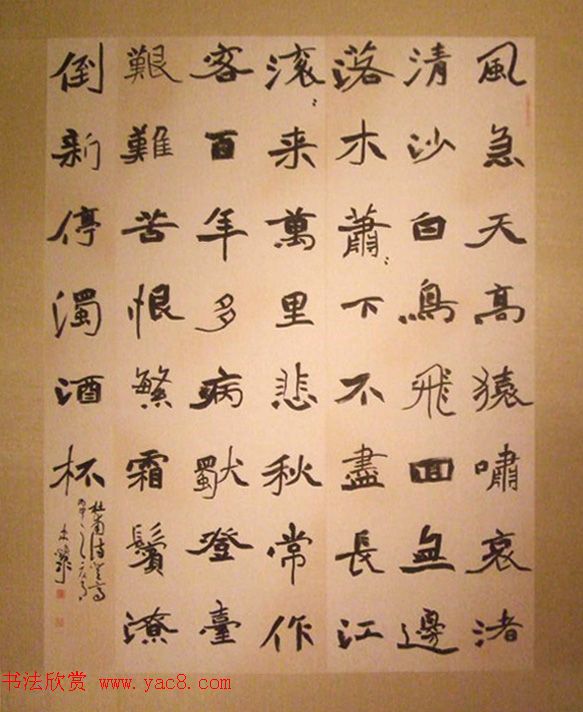 風急天高猿嘯哀渚
清沙白鳥飛囬無邊
落木蕭〻下不盡長江
滾〻来萬里悲秋常作
客百年多病獨登臺
艱難苦恨繁霜鬢潦
倒新停濁酒杯
杜甫詩登高
书法欣赏 www.yac8.com